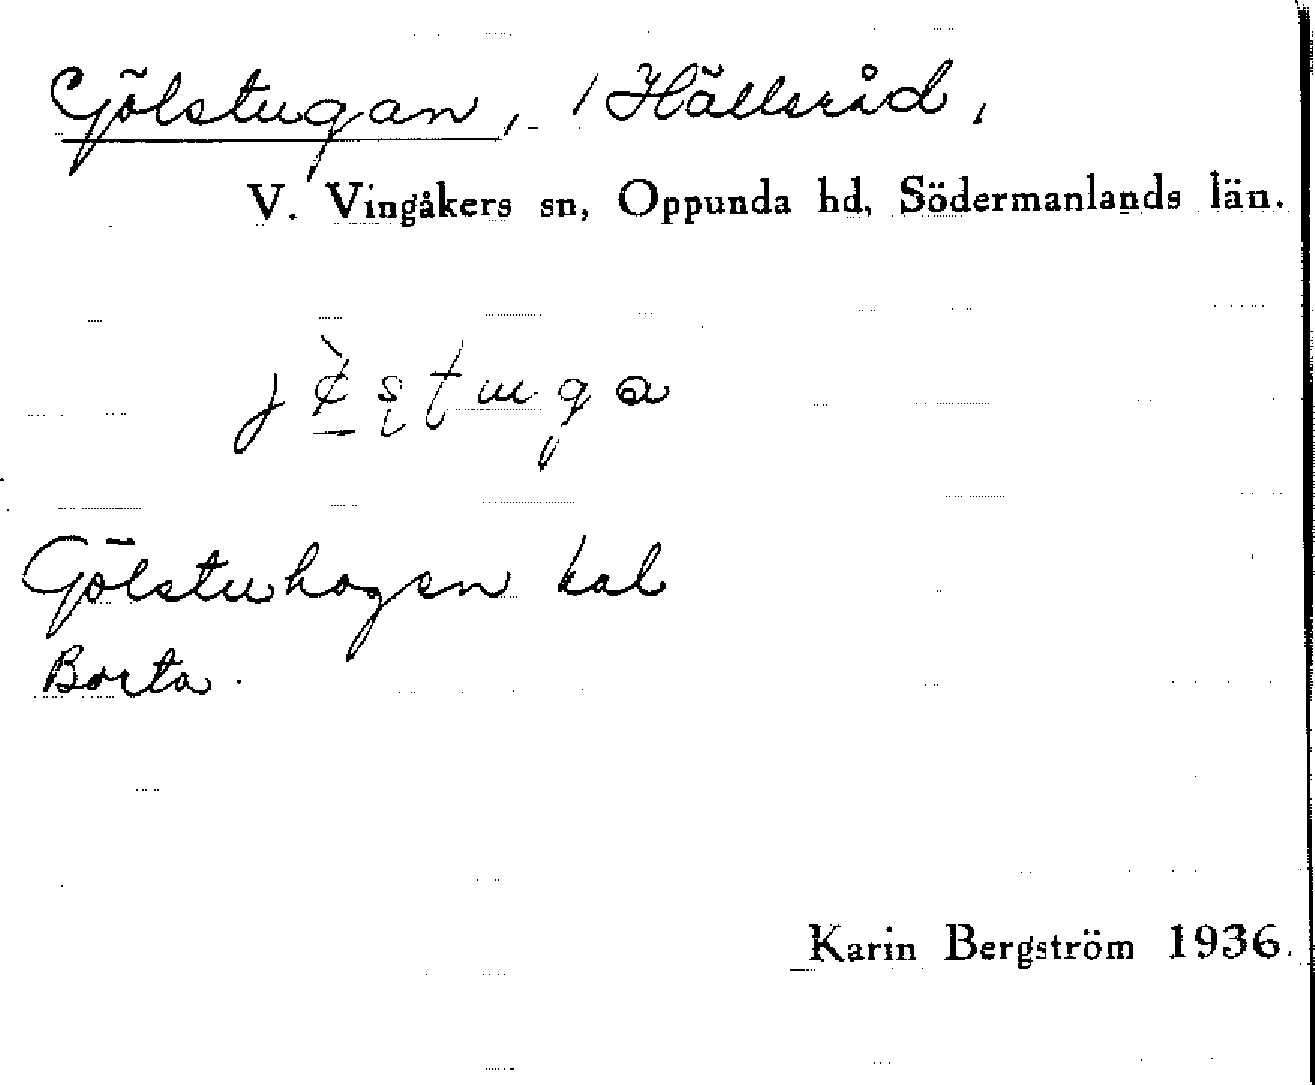 Gölstugan, / Hällsråd,
V. Vingåkers sn, Oppunda hd, Södermanlands län.
Gölstuhagen kal
Borta.
Karin Bergström 1936.